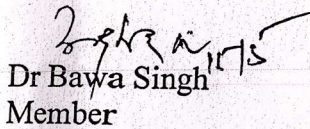 11/5
Dr Bawa Singh
Member